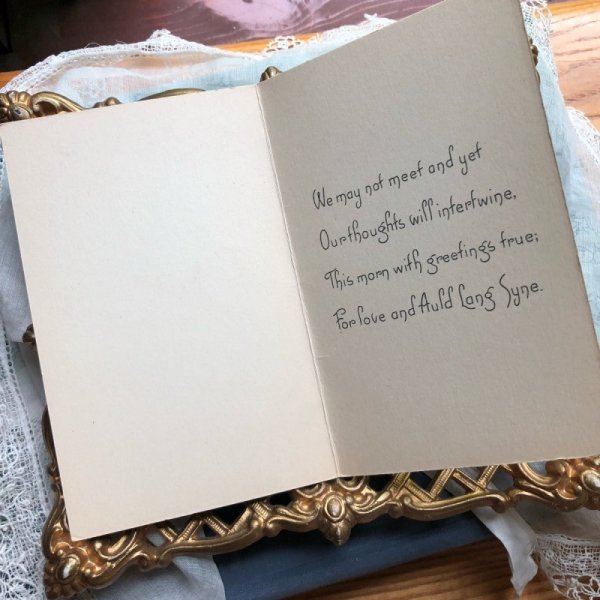 We may not meet and yet
Our thoughts will intertwine,
This morn with greetings true;
For love and Auld Lang Syne.